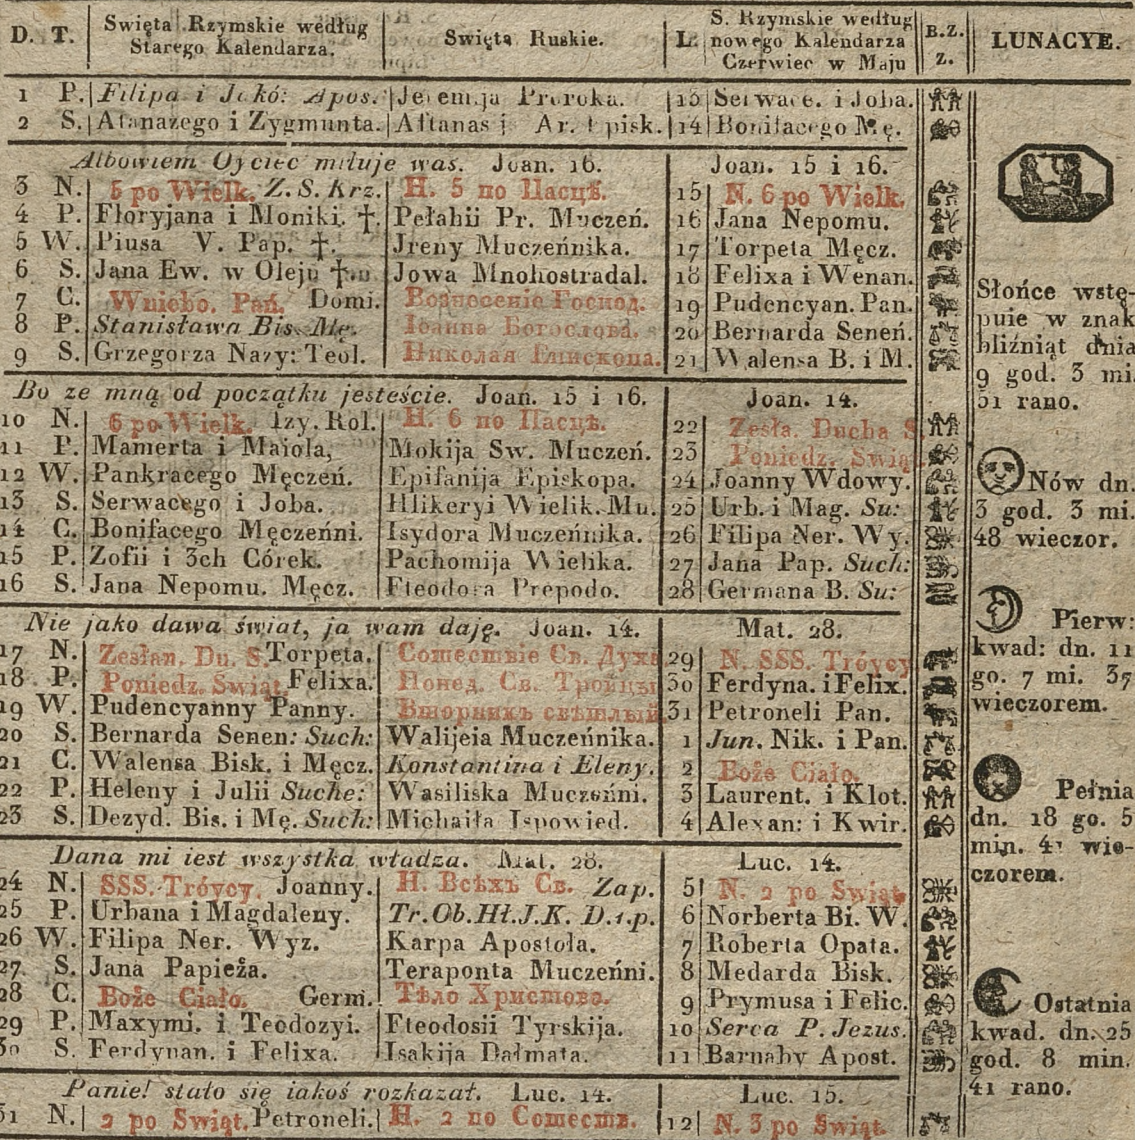 D. T. Swięta Rzymskie według Starego Kalendarza. Swięta Ruskie. L. S. Rzymskie według nowego Kalendarza Czerwiec w Maju B.Z. z. LUNACYE.
1 P. Filipa i Jakó: Apos. Jeremija Proroka. 13 Serwace. i Joba.
2 S. Atanazego i Zygmunta. Aftanasj Ar. Episk. 14 Bonifacego Mę.
Albowiem Oyciec miłuje was. Joan. 16. Joan. 15 i 16.
3 N. 5 po Wielk. Z. S. Krz. Н. 5 по Пасцѣ. 15 N. 6 po Wielk.
4 P. Floryjana i Moniki. †. Pełahii Pr. Muczeń. 16 Jana Nepomu.
5 W. Piusa V. Pap. †. Jreny Muczeńnika. 17 Torpeta Męcz.
6 S. Jana Ew. w Oleju †. Jowa Mnohostradal. 18 Felixa i Wenan.
7 C. Wniebo. Pań. Domi. Вознесеніе Господ. 19 Pudencyan. Pan.
8 P. Stanisława Bis. Mę. Іоанна Богослова. 20 Bernarda Seneń.
9 S. Grzegorza Nazy: Teol. Николая Епископа. 21 Walensa B. i M.
Bo ze mną od początku jesteście. Joan. 15 i 16. Joan. 14.
10 N. 6 po Wielk. Izy. Rol. Н. 6 по Пасцѣ. 22 Zesła. Ducha S
11 P. Mamerta i Maiola, Mokija Sw. Muczeń. 23 Poniedz. Swiąt
12 W. Pankracego Męczeń. Epifanija Episkopa. 24 Joanny Wdowy.
13 S. Serwacego i Joba. Hlikeryi Wielik. Mu. 25 Urb. i Mag. Su:
14 C. Bonifacego Męczeńni. Isydora Muczeńnika. 26 Filipa Ner. Wy.
15 P. Zofii i 3ch Córek. Pachomija Wielika. 27 Jana Pap. Such:
16 S. Jana Nepomu. Męcz. Fteodora Prepodo. 28 Germana B. Su:
Nie jako dawa świat, ja wam daję. Joan. 14. Mat. 28.
17 N. Zesłan. Du. S. Torpeta. Сошествіе Св. Духа 29 N. SSS. Tróycy
18 P. Poniedz. Swiąt. Felixa. Понед. Св. Тройцы 30 Ferdyna. i Felix.
19 W. Pudencyanny Panny. Вторникъ свѣтлый 31 Petroneli Pan.
20 S. Bernarda Senen: Such: Walijeia Muczeńnika. 1 Jun. Nik. i Pan.
21 C. Walensa Bisk. i Męcz. Konstantina i Eleny. 2 Boże Ciało.
22 P. Heleny i Julii Suche: Wasiliska Muczeńni. 3 Laurent. i Klot.
23 S. Dezyd. Bis. i Mę. Such: Michaiła Ispowied. 4 Alexan: i Kwir.
Dana mi iest wszystka władza. Mat. 28. Luc. 14.
24 N. SSS. Tróycy. Joanny. Н. Всѣхъ Св. Zap. 5 N. 2 po Swiąt.
25 P. Urbana i Magdaleny. Tr. Ob. Hł. J. K. D. i. p. 6 Norberta Bi. W.
26 W. Filipa Ner. Wyz. Karpa Apostoła. 7 Roberta Opata.
27 S. Jana Papieża. Teraponta Muczeńni. 8 Medarda Bisk.
28 C. Boże Ciało. Germ. Тѣло Христово. 9 Prymusa i Felic.
29 P. Maxymi. i Teodozyi. Fteodosii Tyrskija. 10 Serca P. Jezus.
30 S. Ferdynan. i Felixa. Isakija Dałmata. 11 Barnaby Apost.
Panie! stało się iakoś rozkazał. Luc. 14. Luc. 15.
31 N. 2 po Swiąt. Petroneli. Н. 2 по Сошеств. 12 N. 3 po Swiąt.
Słońce wstę-
puie w znak
bliźniąt dnia
9 god. 3 mi.
51 rano.
Nów dn.
3 god. 3 mi.
48 wieczor.
Pierw:
kwad: dn. 11
go. 7 mi. 37
wieczorem.
Pełnia
dn. 18 go. 5
min. 41 wie-
czorem.
Ostatnia
kwad. dn. 25
god. 8 min.
41 rano.